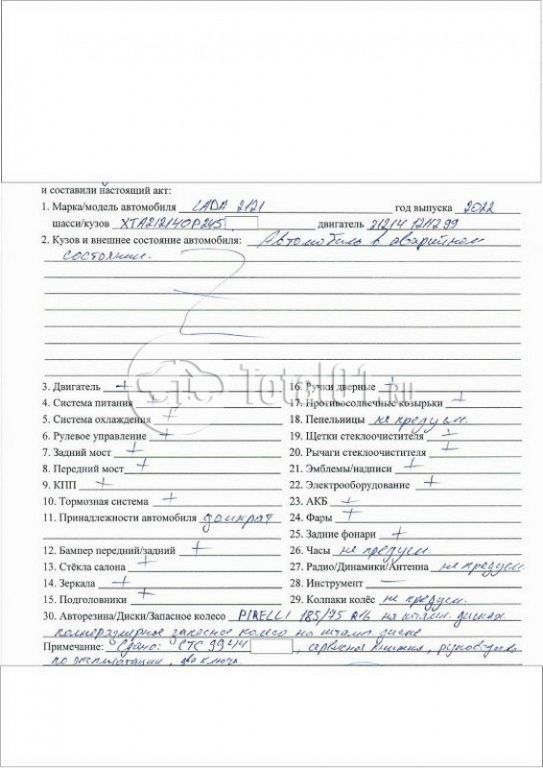 и составили настоящий акт:
1. Марка/модель автомобиля LADA 2121 год выпуска 2022
шасси/кузов XTA212140P245 двигатель 21214 1211299
2. Кузов и внешнее состояние автомобиля: Автомобиль в аварийном
состоянии.
Total01.ru
3. Двигатель + 16. Ручки дверные +
4. Система питания + 17. Противосолнечные козырьки +
5. Система охлаждения + 18. Пепельницы не предусм.
6. Рулевое управление + 19. Щетки стеклоочистителя +
7. Задний мост + 20. Рычаги стеклоочистителя +
8. Передний мост + 21. Эмблемы/надписи +
9. КПП + 22. Электрооборудование +
10. Тормозная система + 23. АКБ +
11. Принадлежности автомобиля домкрат 24. Фары +
25. Задние фонари +
12. Бампер передний/задний + 26. Часы не предусм.
13. Стёкла салона + 27. Радио/Динамики/Антенна не предусм.
14. Зеркала + 28. Инструмент —
15. Подголовники + 29. Колпаки колёс не предусм.
30. Авторезина/Диски/Запасное колесо PIRELLI 185/75 R16 на штамп. дисках
полноразмерное запасное колесо на штамп. диске
Примечание: Сдано: СТС 9944, сервисная книжка, руководство
по эксплуатации, два ключа.